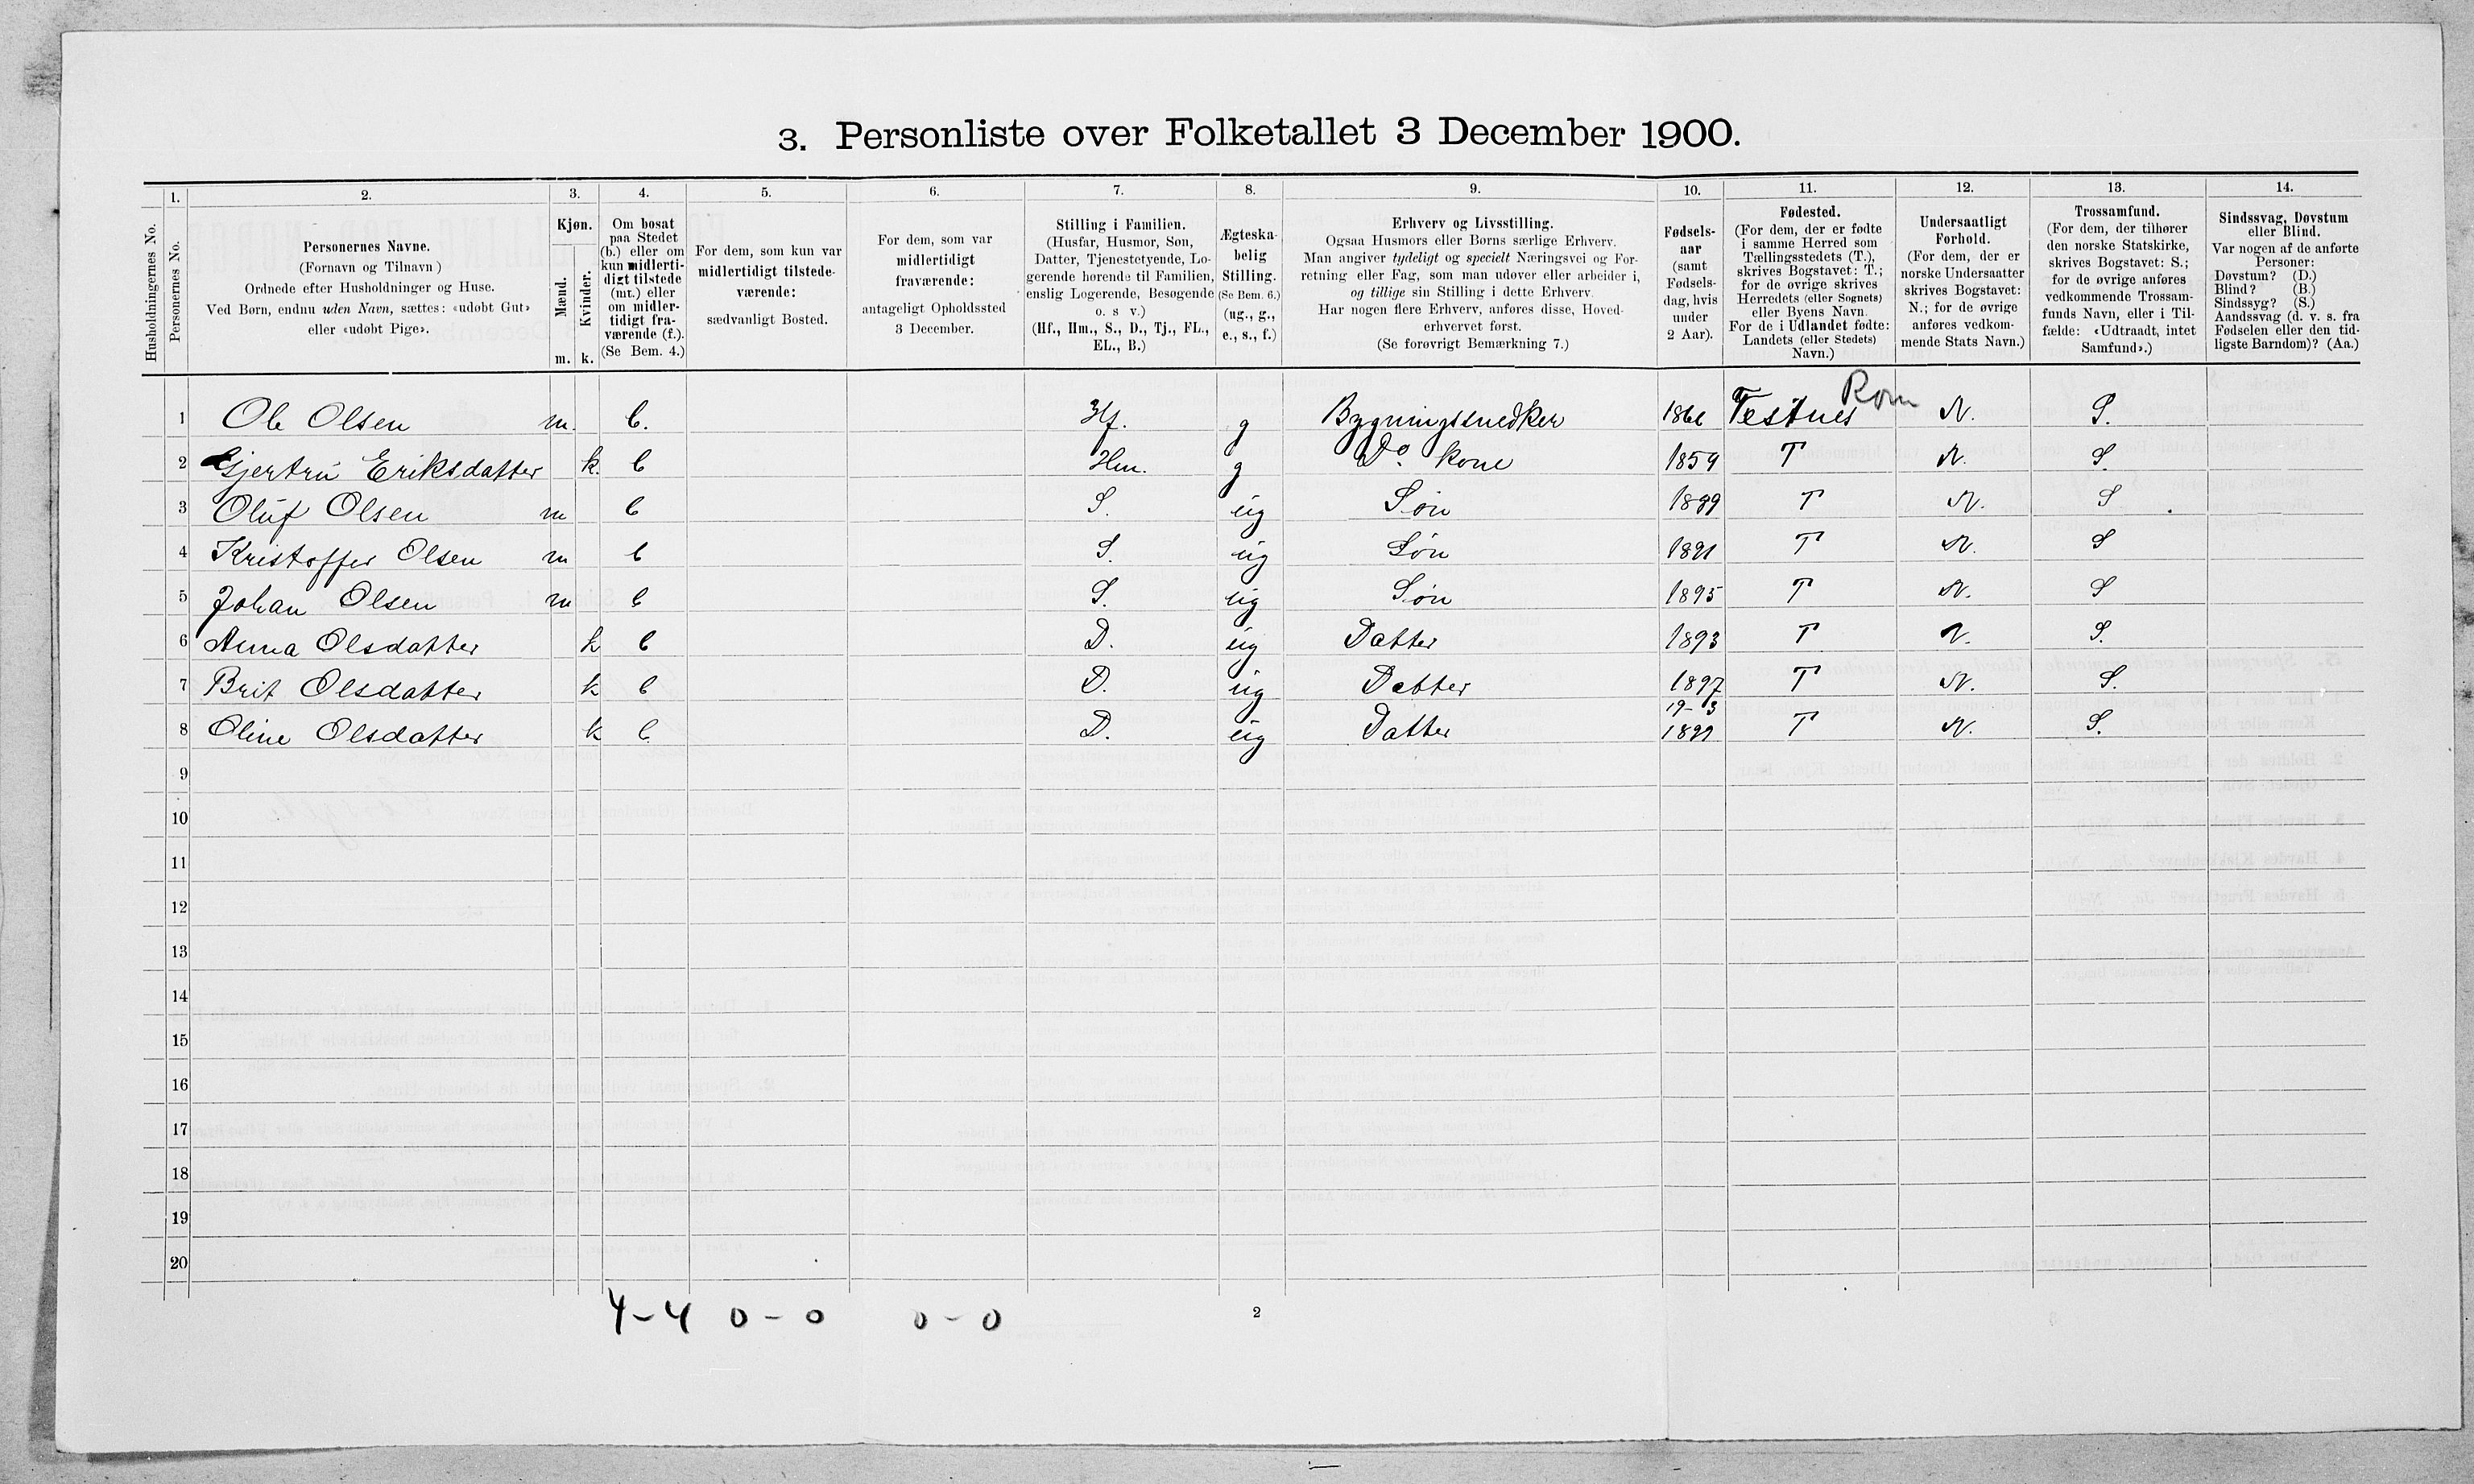 3. Personliste over Folketallet 3 December 1900.
1. 2. 3. 4. 5. 6. 7. 8. 9. 10. 11. 12. 13. 14.
Husholdningernes No.
Personernes No.
Personernes Navne.
(Fornavn og Tilnavn)
Ordnede efter Husholdninger og Huse.
Ved Børn, endnu uden Navn, sættes: «udøbt Gut»
eller «udøbt Pige».
Kjøn.
Mænd.
Kvinder.
m. k.
Om bosat
paa Stedet
(b.) eller om
kun midlerti-
digt tilstede
(mt.) eller
om midler-
tidigt fra-
værende (f.).
(Se Bem. 4.)
For dem, som kun var
midlertidigt tilstede-
værende:
sædvanligt Bosted.
For dem, som var
midlertidigt
fraværende:
antageligt Opholdssted
3 December.
Stilling i Familien.
(Husfar, Husmor, Søn,
Datter, Tjenestetyende, Lo-
gerende hørende til Familien,
enslig Logerende, Besøgende
o. s v.)
(Hf., Hm., S., D., Tj., FL.,
EL., B.)
Ægteska-
belig
Stilling.
(Se Bem. 6.)
(ug., g.,
e., s., f.)
Erhverv og Livsstilling.
Ogsaa Husmors eller Børns særlige Erhverv.
Man angiver tydeligt og specielt Næringsvei og For-
retning eller Fag, som man udøver eller arbeider i,
og tillige sin Stilling i dette Erhverv.
Har nogen flere Erhverv, anføres disse, Hoved-
erhvervet først.
(Se forøvrigt Bemærkning 7.)
Fødsels-
aar
(samt
Fødsels-
dag, hvis
under
2 Aar).
Fødested.
(For dem, der er fødte
i samme Herred som
Tællingsstedets (T.),
skrives Bogstavet: T.;
for de øvrige skrives
Herredets (eller Sognets)
eller Byens Navn.
For de i Udlandet fødte:
Landets (eller Stedets)
Navn.)
Undersaatligt
Forhold.
(For dem, der er
norske Undersaatter
skrives Bogstavet:
N.; for de øvrige
anføres vedkom-
mende Stats Navn.)
Trossamfund.
(For dem, der tilhører
den norske Statskirke,
skrives Bogstavet: S.;
for de øvrige anføres
vedkommende Trossam-
funds Navn, eller i Til-
fælde: «Udtraadt, intet
Samfund».)
Sindssvag, Døvstum
eller Blind.
Var nogen af de anførte
Personer:
Døvstum? (D.)
Blind? (B.)
Sindssyg? (S.)
Aandssvag (d. v. s. fra
Fødselen eller den tid-
ligste Barndom)? (Aa.)
1 Ole Olsen m. b. Hf. g Bygningssnedker Rom N. S.
2 Gjertru Eriksdatter k. b Hm. g Do kone 1859 T N. S.
3 Oluf Olsen m b S. ug Søn 1889 T N. S
4 Kristoffer Olsen m b S. ug Søn 1891 T N. S
5 Johan Olsen m b S. ug Søn 1895 T N. S
6 Anna Olsdatter k b D. ug Datter 1893 T N. S.
7 Brit Olsdatter k b D. ug Datter 1897 T N. S.
19-3
8 Oline Olsdatter k b D. ug Datter 1899 T N. S.
9
10
11
12
13
14
15
16
17
18
19
20
4-4 0-0 0-0 2